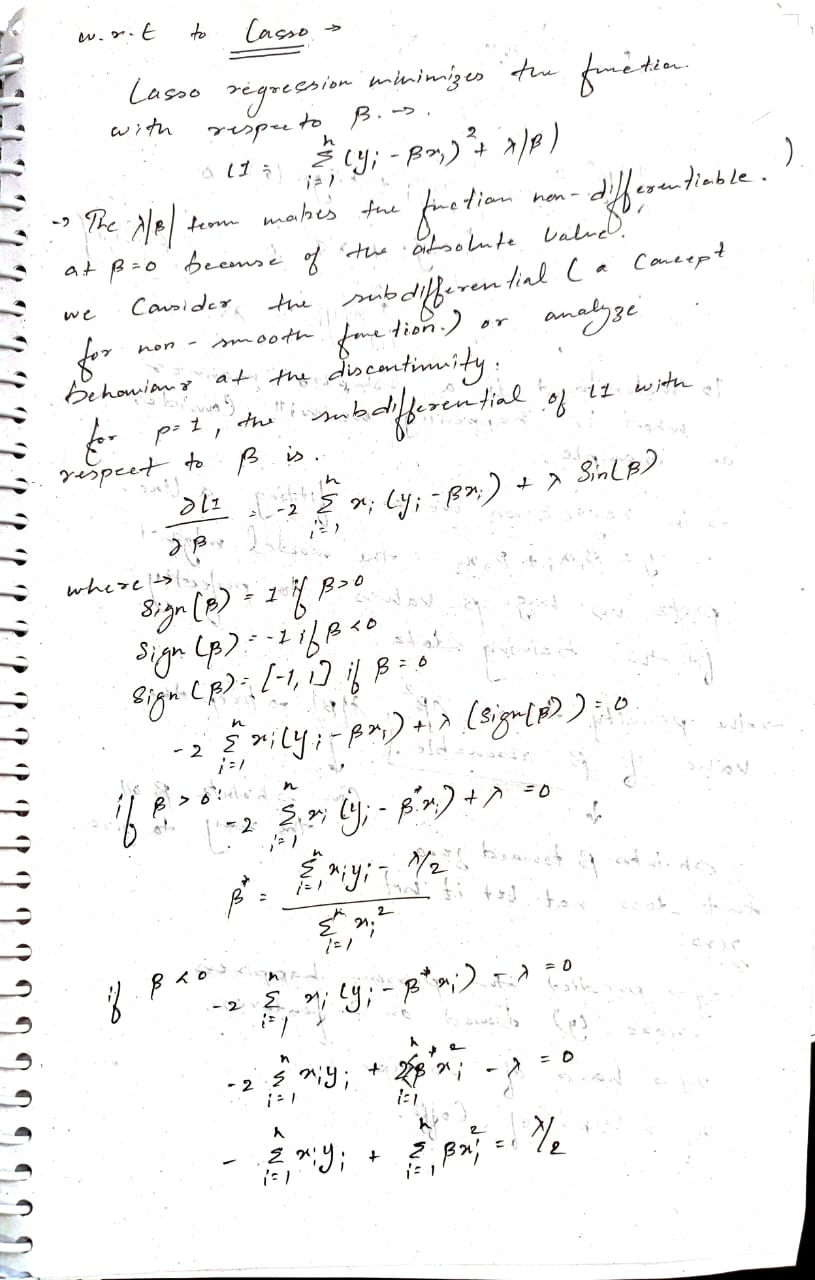 w.r.t to Lasso →
Lasso regression minimizes the function
with respect to β. →
L1 = Σ_{i=1}^{n} (y_i - βx_i)² + λ|β|
→ The λ|β| term makes the function non-differentiable. )
at β=0 because of the absolute value.
we Consider the subdifferential ( a Concept
for non-smooth function.) or analyze
behaviour at the discontinuity.
for p=1, the subdifferential of L1 with
respect to β is.
∂L1/∂β = -2 Σ_{i=1}^{n} x_i (y_i - βx_i) + λ Sin(β)
where →
Sign(β) = 1 if β>0
Sign(β) = -1 if β<0
Sign(β) = [-1, 1] if β=0
-2 Σ_{i=1}^{n} x_i(y_i - βx_i) + λ (Sign(β)) = 0
if β > 0: -2 Σ_{i=1}^{n} x_i (y_i - β*x_i) + λ = 0
β* = (Σ_{i=1}^{n} x_i y_i - λ/2) / (Σ_{i=1}^{n} x_i²)
if β < 0 -2 Σ_{i=1}^{n} x_i (y_i - β*x_i) - λ = 0
-2 Σ_{i=1}^{n} x_i y_i + 2Σ_{i=1}^{n} β*x_i² - λ = 0
- Σ_{i=1}^{n} x_i y_i + Σ_{i=1}^{n} βx_i² = λ/2